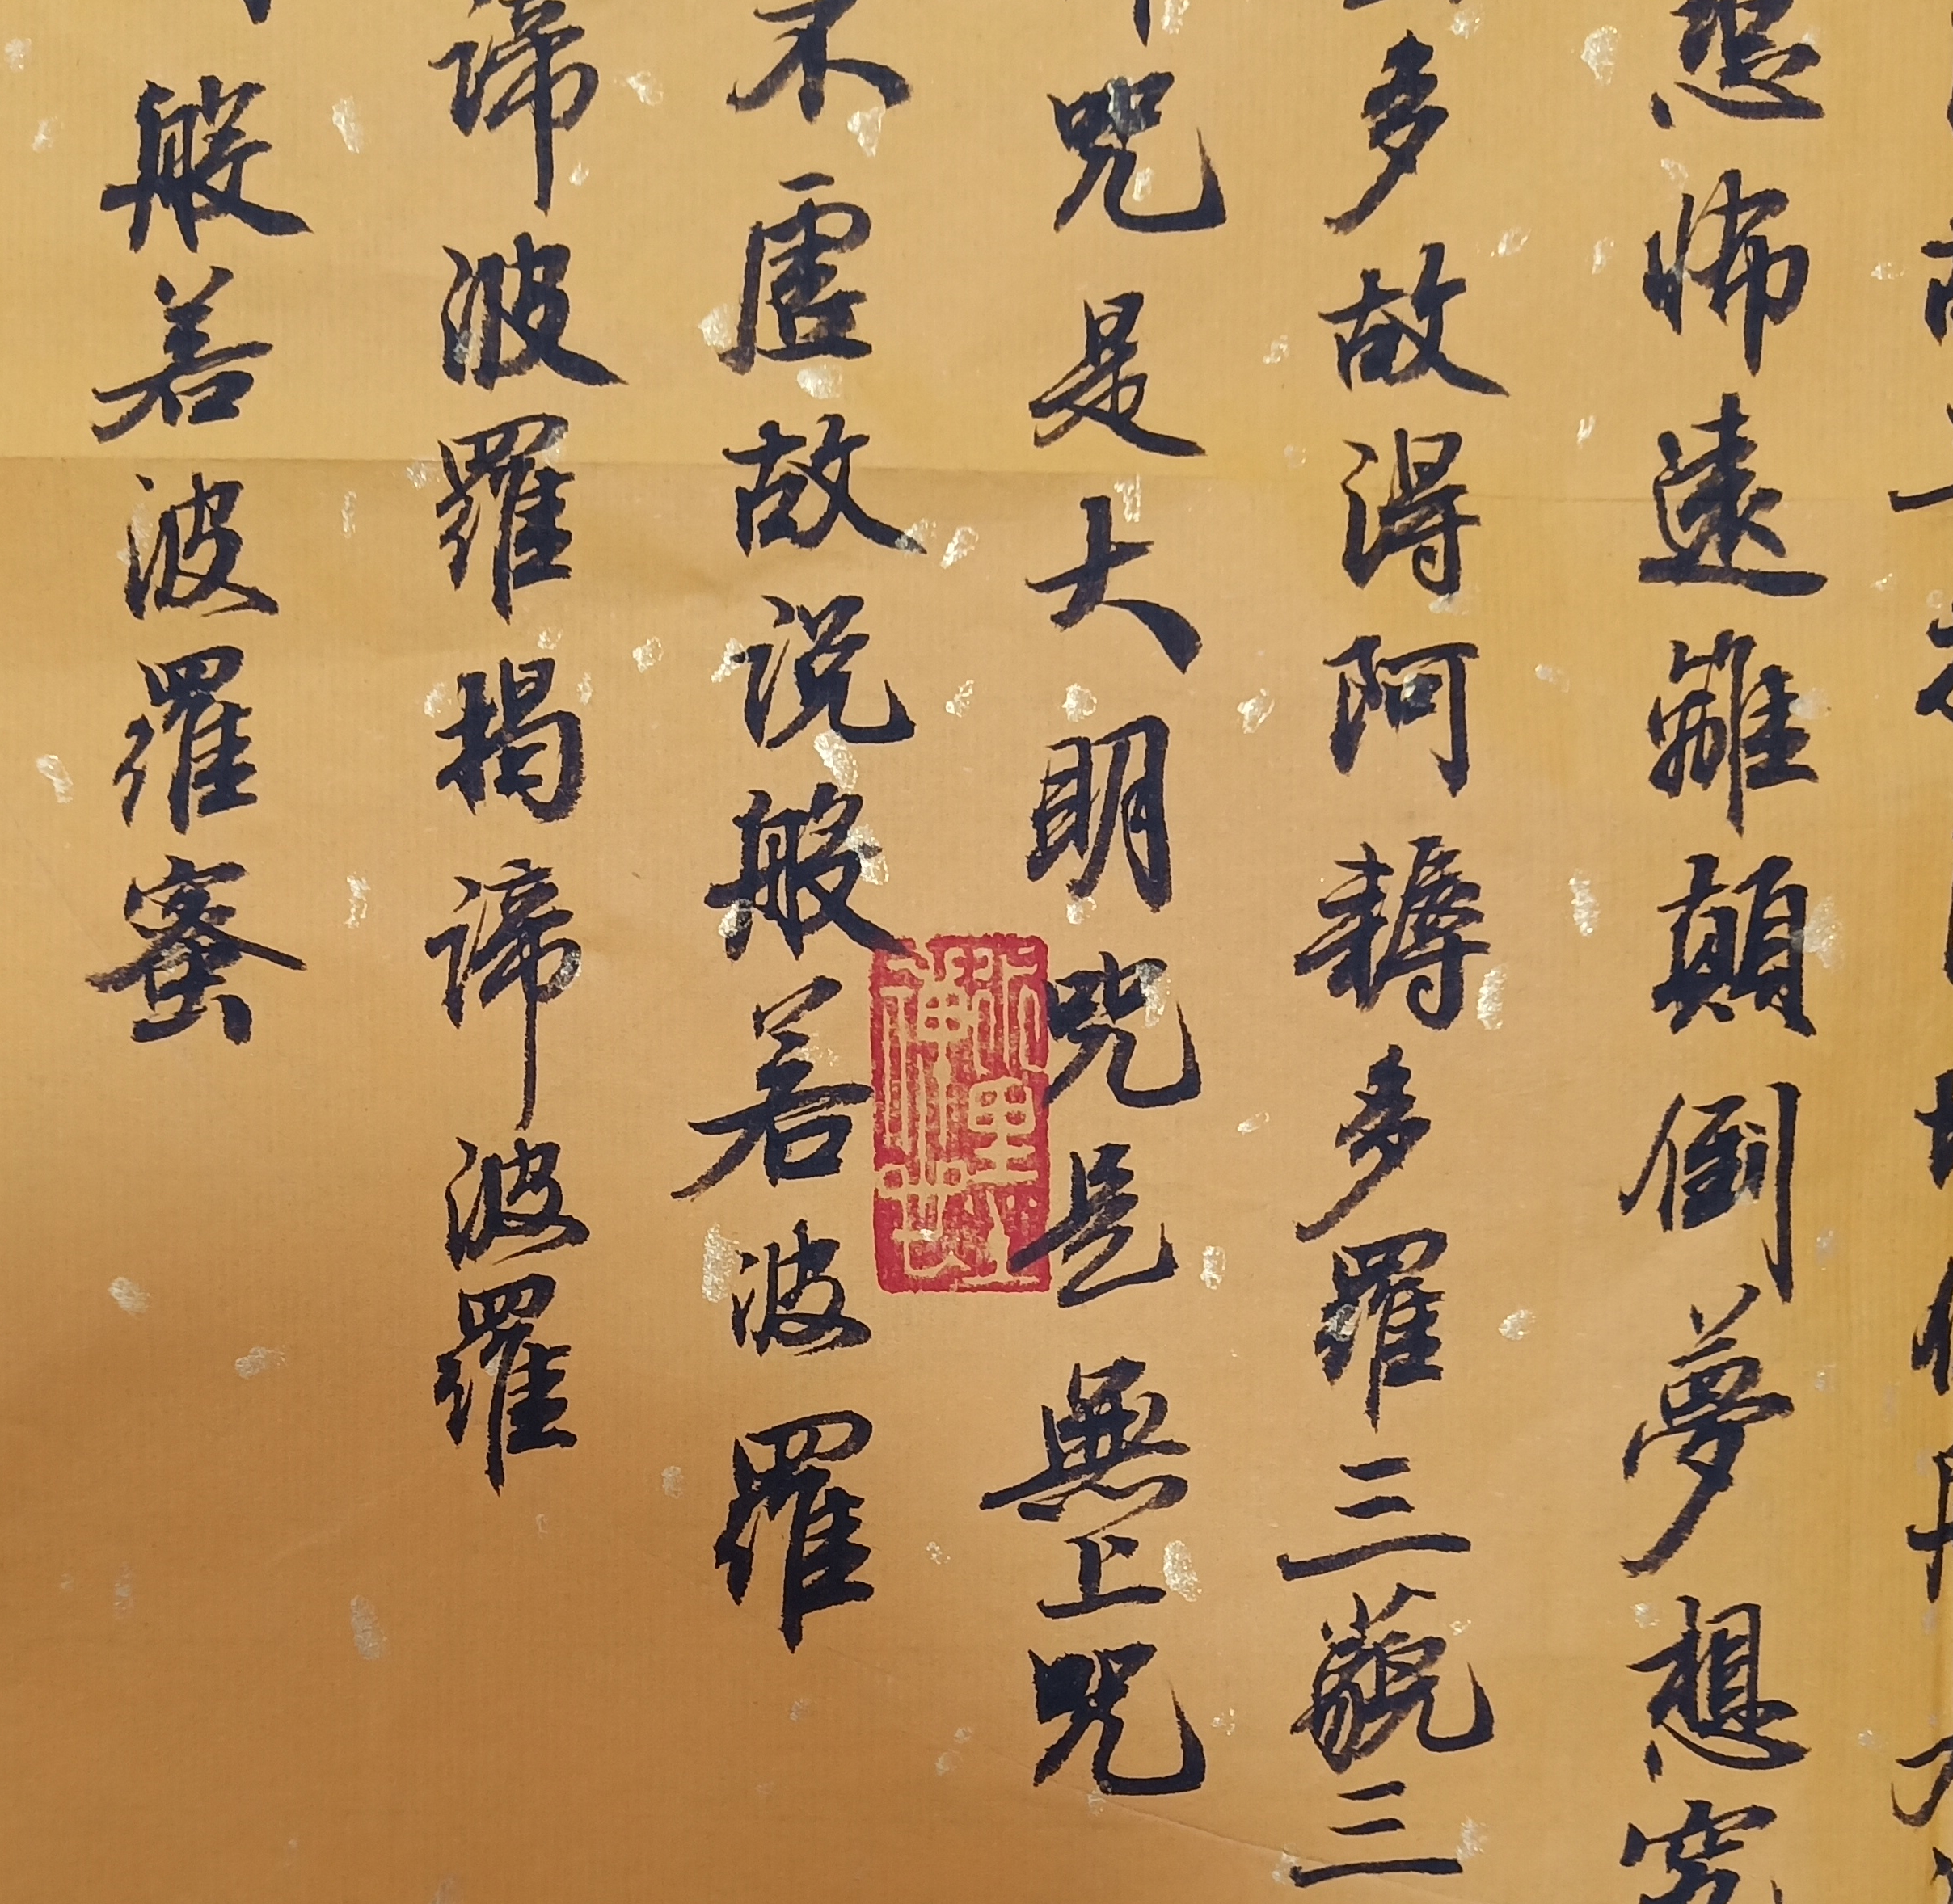 怖遠離顛倒夢想究
多故得阿耨多羅三藐三
咒是大明咒是無上咒
不虛故說般若波羅
諦波羅揭諦波羅
般若波羅蜜